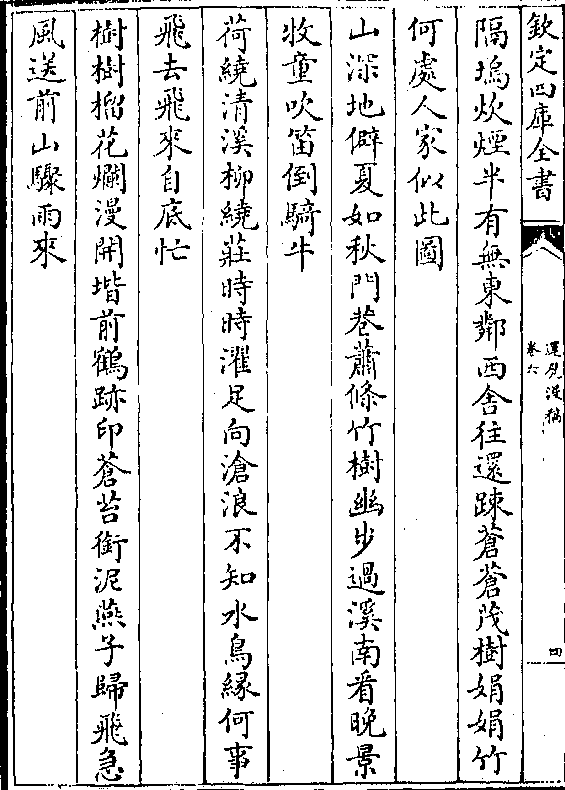 欽定四庫全書
運甓漫稿
卷六
四
隔塢炊煙半有無東鄰西舍往還踈蒼蒼茂樹娟娟竹
何處人家似此圖
山深地僻夏如秋門巷蕭條竹樹幽步過溪南看晚景
牧童吹笛倒騎牛
荷繞清溪柳繞莊時時濯足向滄浪不知水鳥緣何事
飛去飛來自底忙
樹樹榴花爛漫開堦前鶴跡印蒼苔銜泥燕子歸飛急
風送前山驟雨來